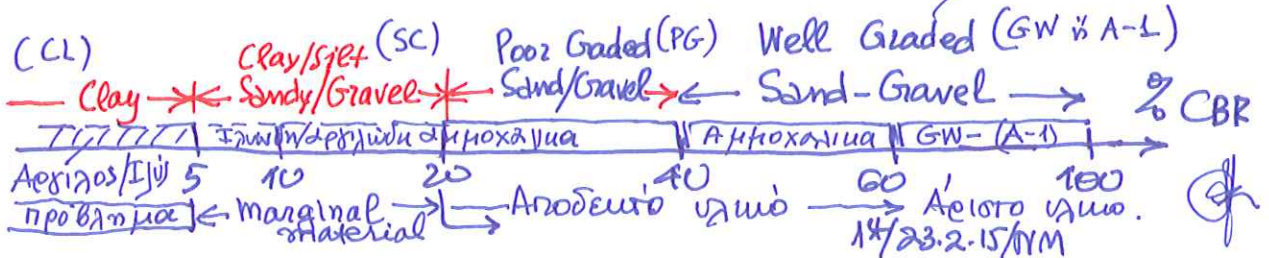 (CL) Clay/Silt (SC) Poor Gaded (PG) Well Graded (GW ή A-1)
Clay Sandy/Gravel Sand/Gravel Sand-Gravel % CBR
Ιλυώδη/αργιλώδη αμμοχάλικα Αμμοχάλικα GW-(A-1)
Αργιλος/Ιλύς 5 10 20 40 60 100
πρόβλημα marginal material Αποδεκτό υλικό Άριστο υλικο.
14/23.2.15/NM